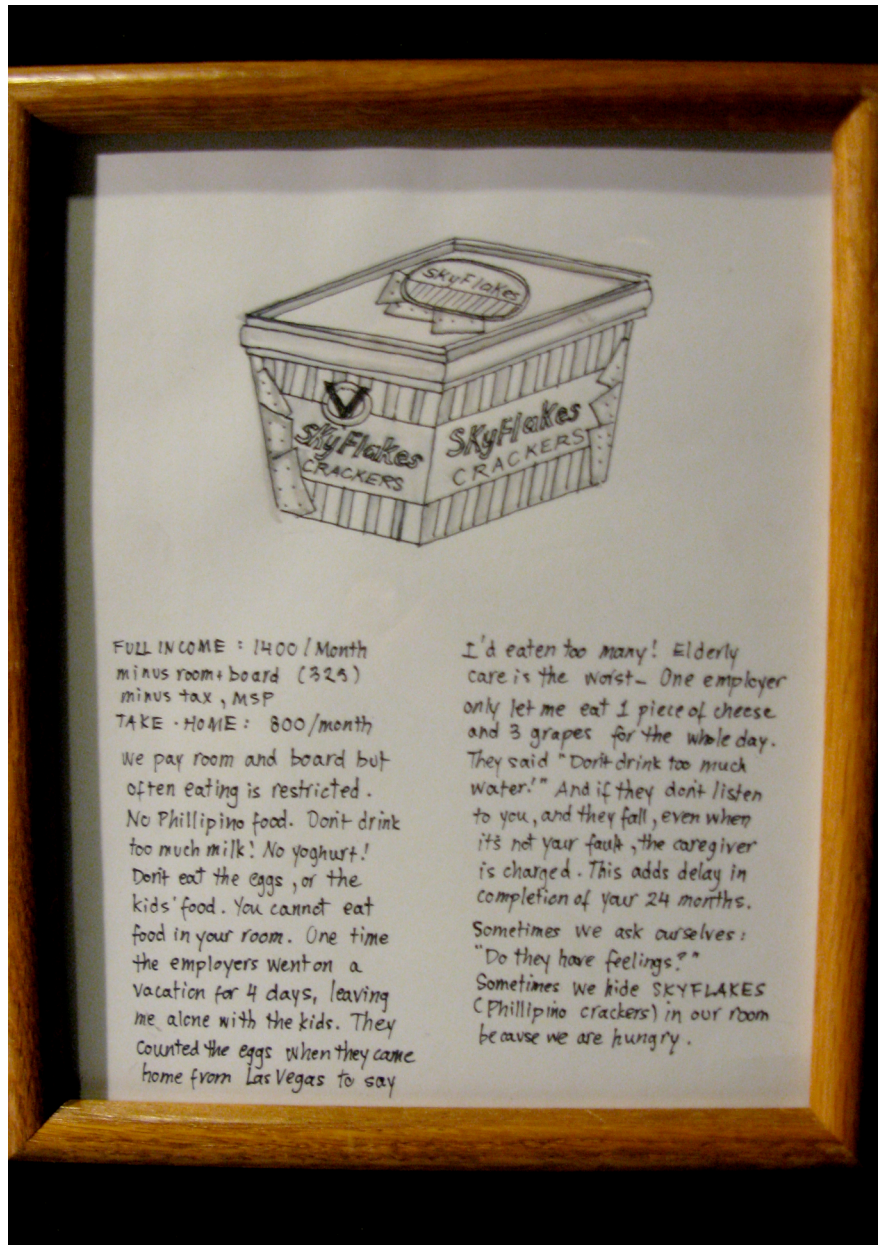 SkyFlakes
SkyFlakes
CRACKERS
SkyFlakes
CRACKERS
FULL INCOME : 1400 / Month
minus room + board (325)
minus tax, MSP
TAKE - HOME : 800/month
We pay room and board but
often eating is restricted.
No Phillipino food. Don't drink
too much milk! No yoghurt!
Don't eat the eggs, or the
kids' food. You cannot eat
food in your room. One time
the employers went on a
vacation for 4 days, leaving
me alone with the kids. They
counted the eggs when they came
home from Las Vegas to say
I'd eaten too many! Elderly
care is the worst - One employer
only let me eat 1 piece of cheese
and 3 grapes for the whole day.
They said "Don't drink too much
water!" And if they don't listen
to you, and they fall, even when
it's not your fault, the caregiver
is charged. This adds delay in
completion of your 24 months.
Sometimes we ask ourselves :
"Do they have feelings?"
Sometimes we hide SKYFLAKES
(Phillipino crackers) in our room
because we are hungry.